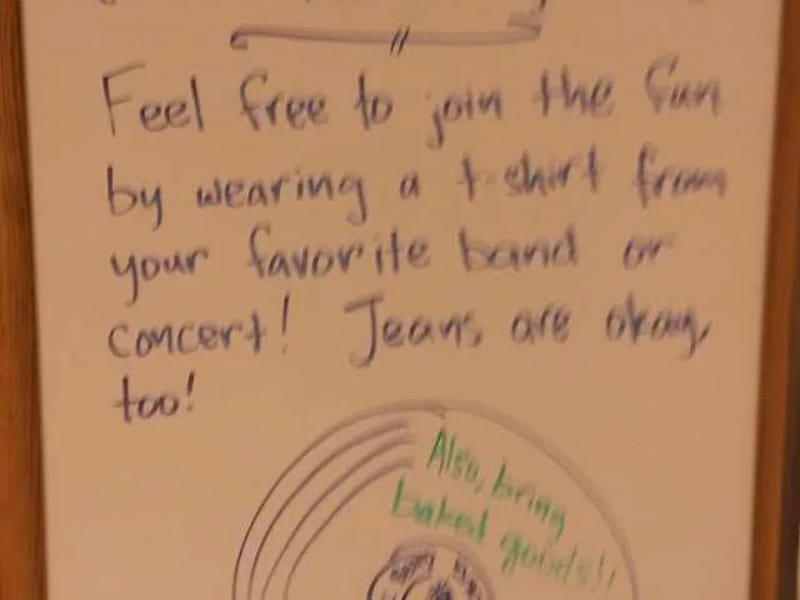 Feel free to join the fun
by wearing a t-shirt from
your favorite band or
concert! Jeans are okay,
too!
Also, bring
baked goods!!